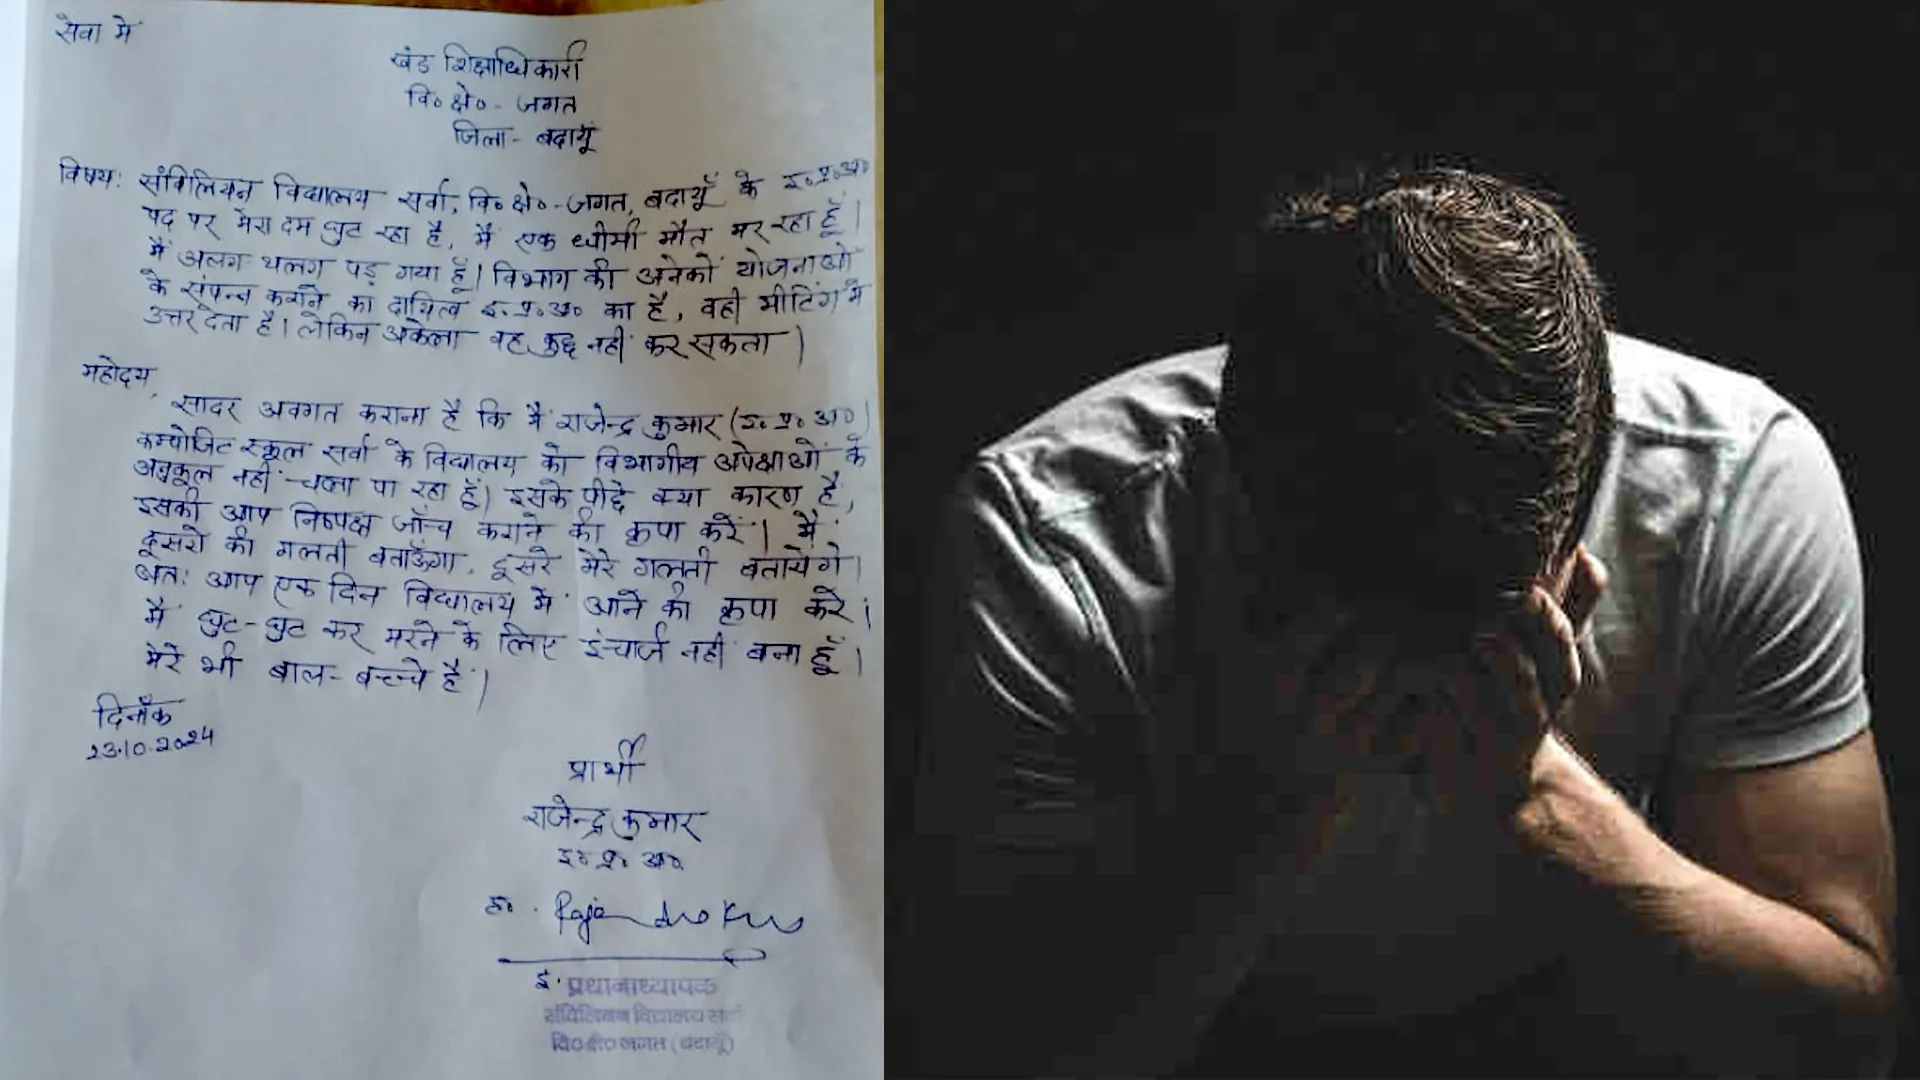 सेवा में
खंड शिक्षाधिकारी
वि० क्षे० - जगत
जिला - बदायूँ
विषय: संविलियन विद्यालय सर्वा, वि० क्षे० - जगत, बदायूँ के इ० प्र० अ०
पद पर मेरा दम घुट रहा है, मैं एक धीमी मौत मर रहा हूँ।
मैं अलग थलग पड़ गया हूँ। विभाग की अनेकों योजनाओं
के संपन्न कराने का दायित्व इ. प्र. अ० का है, वही मीटिंग में
उत्तर देता है। लेकिन अकेला वह कुछ नहीं कर सकता।
महोदय,
सादर अवगत कराना है कि मैं राजेन्द्र कुमार (इ० प्र० अ०)
कम्पोजिट स्कूल सर्वा के विद्यालय को विभागीय अपेक्षाओं के
अनुकूल नहीं चला पा रहा हूँ। इसके पीछे क्या कारण है,
इसकी आप निष्पक्ष जाँच कराने की कृपा करें। मैं
दूसरो की गलती बताऊँगा, दूसरे मेरे गलती बतायेंगे।
अत: आप एक दिन विद्यालय में आने की कृपा करें।
मैं घुट-घुट कर मरने के लिए इंचार्ज नहीं बना हूँ।
मेरे भी बाल-बच्चे है।
दिनाँक
23.10.2024
प्रार्थी
राजेन्द्र कुमार
इ० प्र० अ०
ह०. Rajendra Kum
इ. प्रधानाध्यापक
संविलियन विद्यालय सर्वा
वि० क्षे० जगत (बदायूँ)